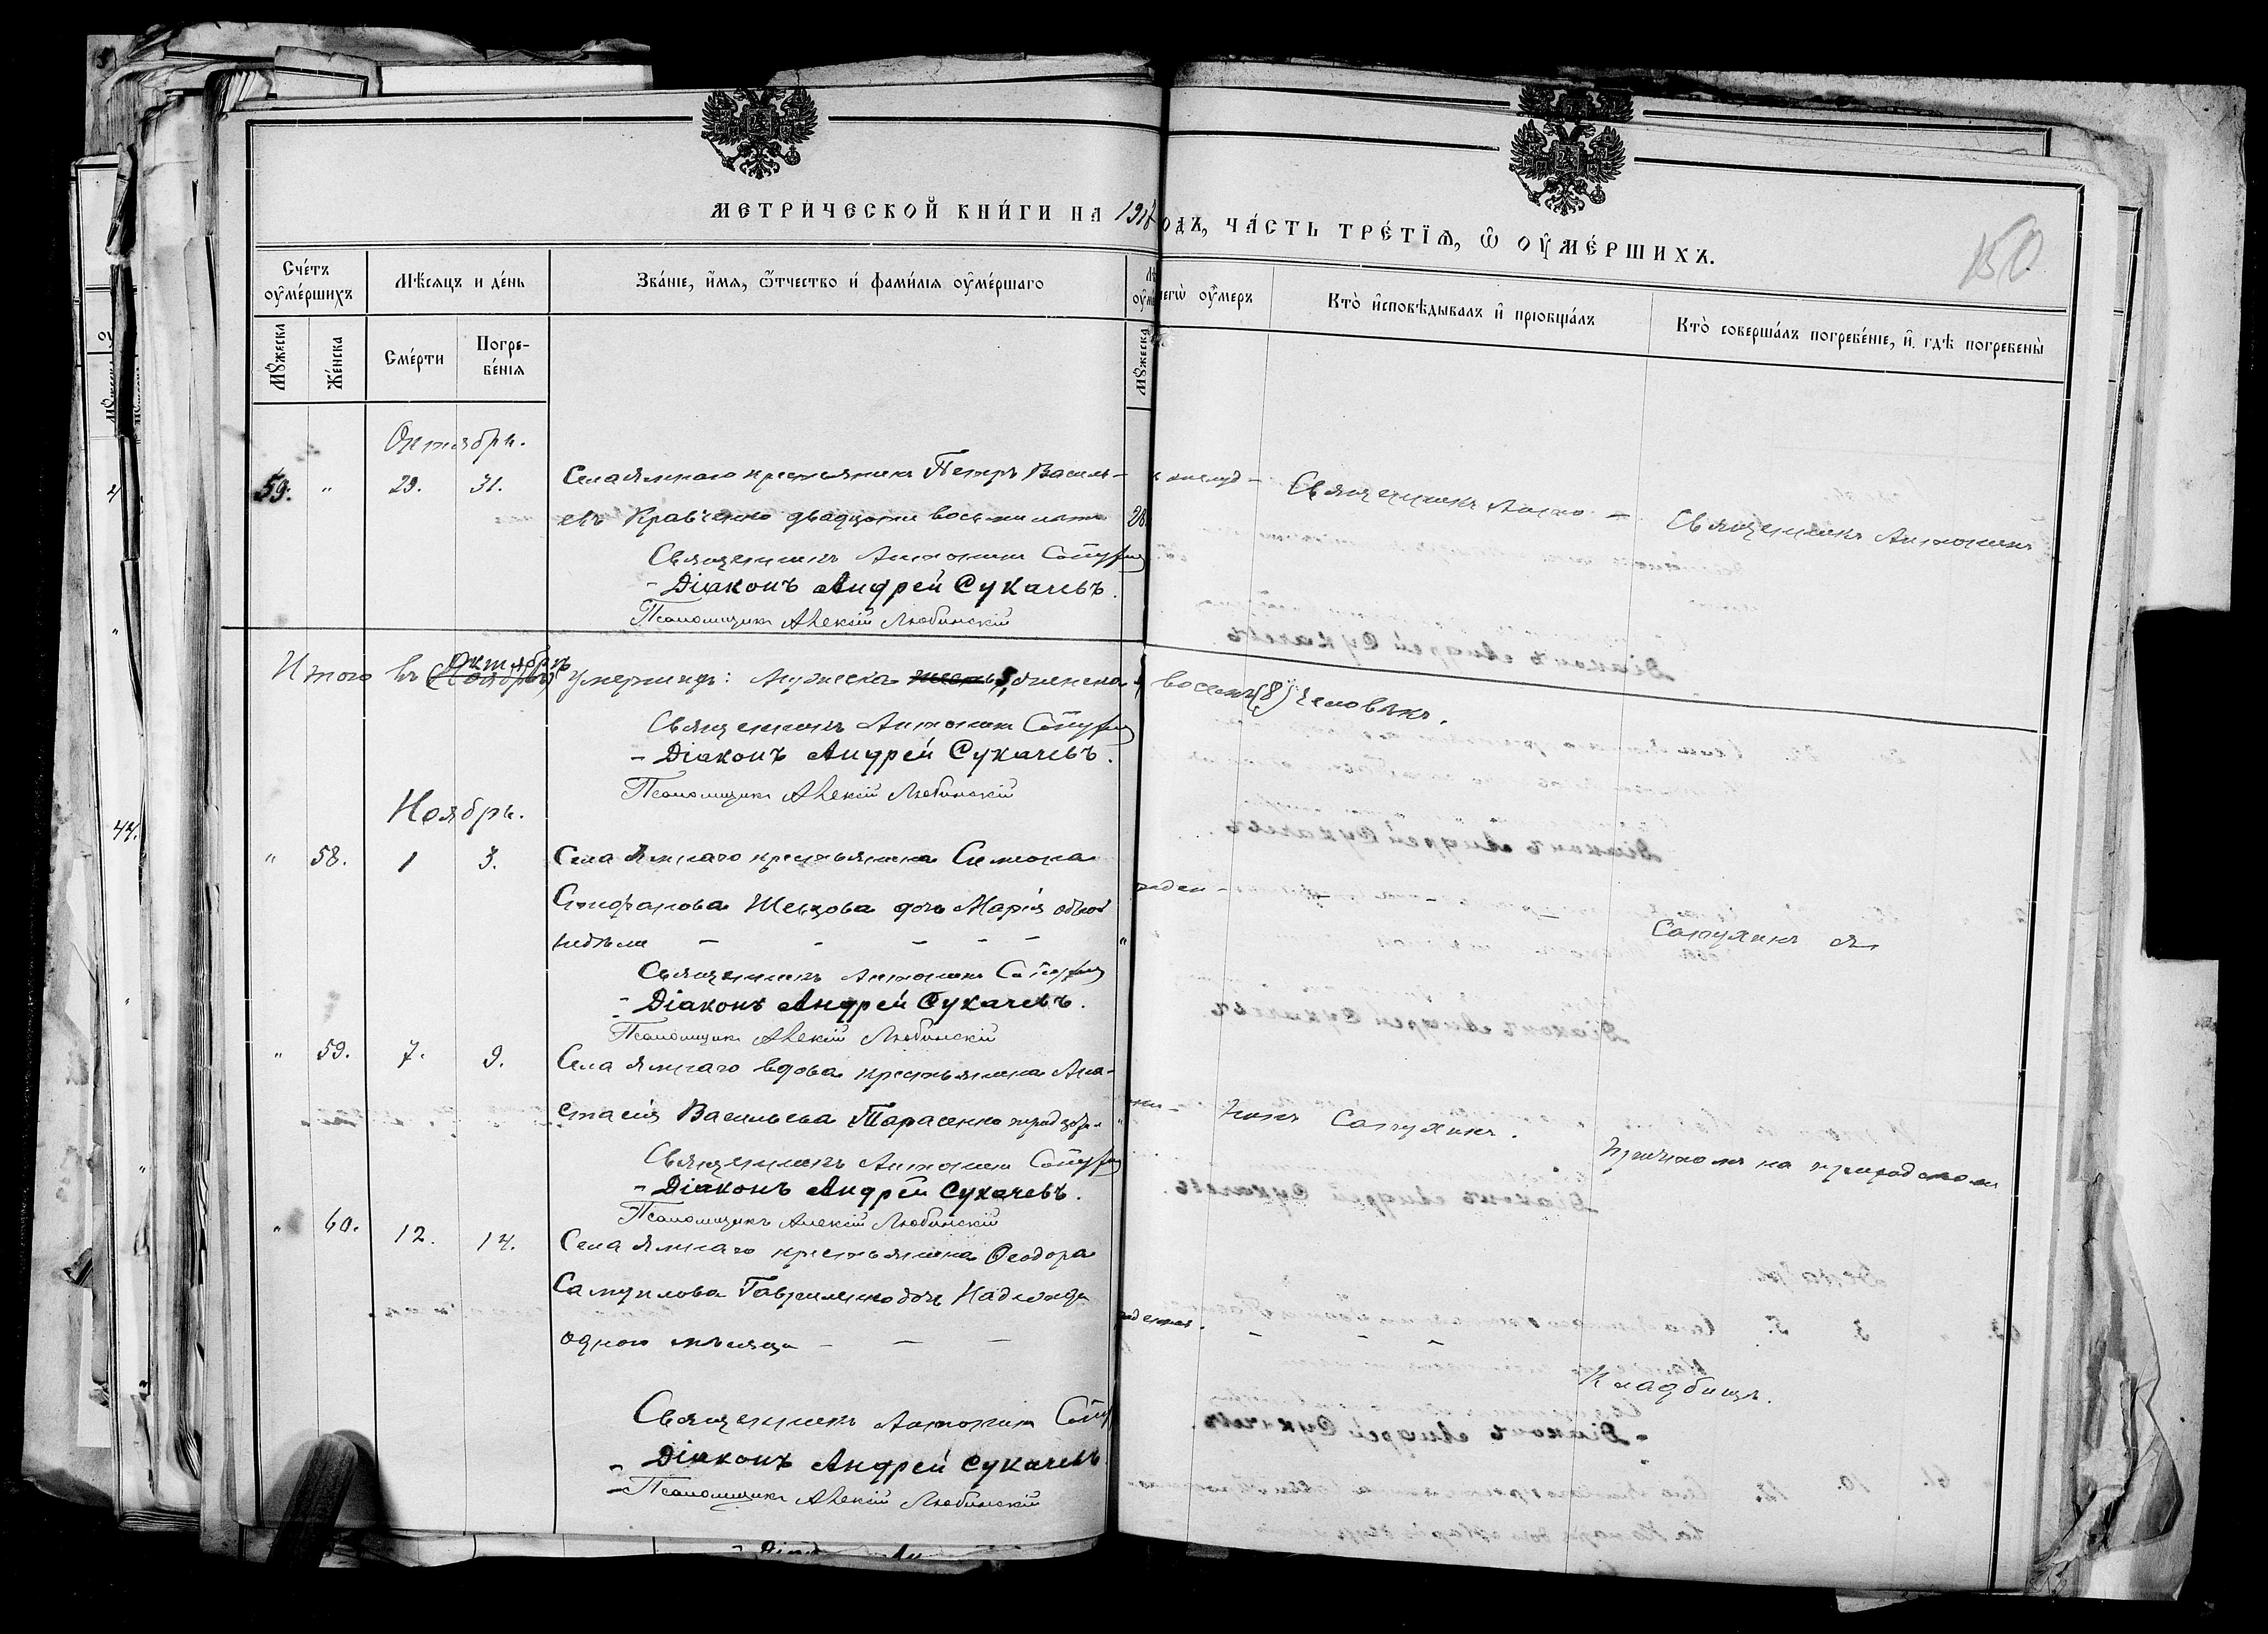 МЕТРИЧЕСКОЙ КНИГИ НА 191
ОДЪ, ЧАСТЬ ТРЕТІЯ, Ѿ ОУМЕРШИХЪ.
150
Счетъ оумершихъ
Мѣсяцъ и день
Званіе, имя, ѿтчество и фамилія оумершаго
Мужеска
Женска
Смерти
Погребенія
Мужеска
егѡ оумеръ
Кто исповѣдывалъ и пріобщалъ
Кто совершалъ погребеніе, и гдѣ погребены
Октябрь.
59. " 29. 31. Села Ямнаго крестьянинъ Петръ Василь-
евъ Кравченко двадцати восьми лѣтъ 28
Священникъ Антонинъ
- Діаконъ Андрей Сукачевъ.
Псаломщикъ Алексій Любинскій
Священникъ Анто-
Священникъ Антонинъ
Итого въ Октябрѣ умершихъ: Мужеска женска
восемь (8) человѣкъ.
Священникъ Антонинъ
- Діаконъ Андрей Сукачевъ.
Псаломщикъ Алексій Любинскій
Ноябрь.
" 58. 1 3. Села Ямнаго крестьянина Симеона
Стефанова Шевцова дочь Марія одной
недѣли - - - - - "
Священникъ Антонинъ
- Діаконъ Андрей Сукачевъ.
Псаломщикъ Алексій Любинскій
Сапухинъ съ
" 59. 7. 9. Села Ямнаго вдова крестьянина Ана-
стасія Васильева Тарасенко
Священникъ Антонинъ
- Діаконъ Андрей Сукачевъ.
Псаломщикъ Алексій Любинскій
нинъ Сапухинъ.
причтомъ на приходскомъ
" 60. 12. 14. Села Ямнаго крестьянина Ѳеодора
Самуилова Гавриленко дочь Надежда
одного мѣсяца - - -
Священникъ Антонинъ
- Діаконъ Андрей Сукачевъ
- Псаломщикъ Алексій Любинскій
Кладбищѣ.
44.